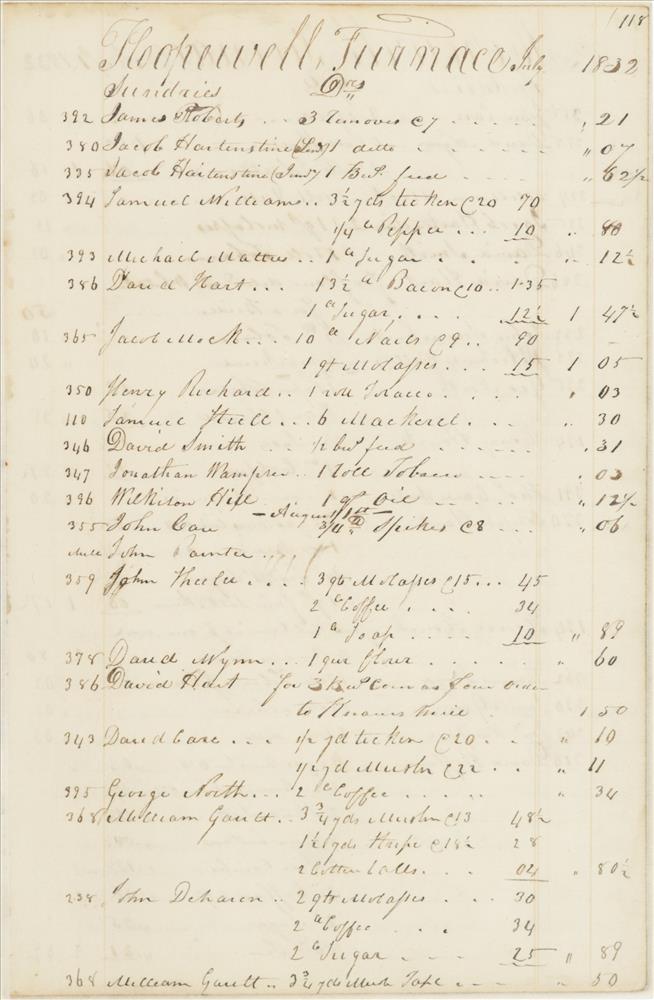 118
Hopewell Furnace July 1832
Sundries Drs
392 James Roberts .. 3 Removes @7 .... " 21
380 Jacob Hartenstine (Sen) 1 ditto .... " 07
335 Jacob Hartenstine (Jun) 1 Bus. feed .... " 62½
394 Samuel William .. 3½ yds ticken @20 70
¼ lb Pepper ... 10 " 80
393 Michael Mattes .. 1 lb Sugar .... " 12½
386 David Hart ... 13½ lb Bacon @10 .. 1.35
1 lb Sugar .... 12½ 1 47½
365 Jacob Mock ... 10 lb Nails @9 .. 90
1 qt Molasses .... 15 1 05
350 Henry Richard .. 1 roll Tobacco .... " 03
110 Samuel ... 6 Mackerel .... " 30
346 David Smith .. ½ bus feed .... " 31
347 Jonathan .. 1 Roll Tobacco .... " 03
396 Wilkison .. 1 qt Oil .... " 12½
— August 1st —
355 John Care ¾ lb Spikes @8 ... " 06
John Painter ...
359 John .... 3 qts Molasses @15 ... 45
2 lb Coffee .... 34
1 lb Soap .... 10 " 89
378 David Wynn ... 1 qur flour .... " 60
386 David Hart for 3 Bus Corn as per Order
to 1 50
343 David Care ... ½ yd ticken @20 .. " 10
½ yd Muslin @22 .. " 11
395 George North ... 2 lb Coffee .... " 34
368 William Gault .. 3¾ yds Muslin @13 48½
1½ yds @18½ 28
2 Cotton balls .... 04 " 80½
238 John Deharen .. 2 qts Molasses ... 30
2 lb Coffee ... 34
2 lb Sugar ... 25 " 89
368 William Gault .. 3¾ yds Tape .... " 50